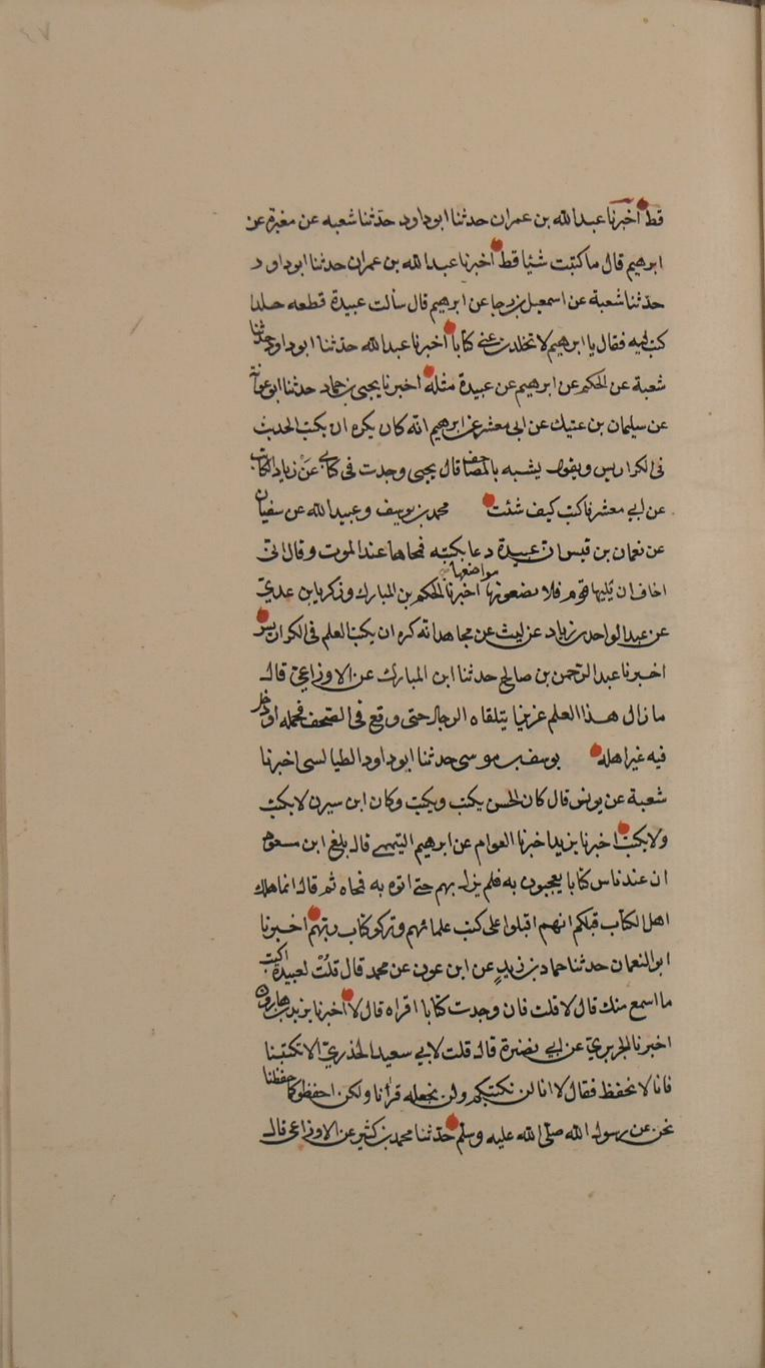 قط أخبرنا عبد الله بن عمران حدثنا ابوداود حدثنا شعبه عن مغيرة عن
ابرهيم قال ما كتبت شئيا قط اخبرنا عبد الله بن عمران حدثنا ابوداود
حدثنا شعبة عن اسمعيل بن رجا عن ابرهيم قال سالت عبيدة قطعه جلد
كتب فيه فقال يا ابرهيم لا تخلدن عني كتابا اخبرنا عبد الله حدثنا ابوداود حدثنا
شعبة عن الحكم عن ابرهيم عن عبيدة مثله اخبرنا يحيى بن حماد حدثنا ابو عوانة
عن سليمان بن عتيك عن ابى معشر عن ابرهيم انه كان يكره ان يكتب الحديث
فى الكراريس ويقول يشبه بالمصاحف قال يحيى وجدت فى كتابى عن زياد الكاتب
عن ابي معشر فاكتب كيف شئت محمد بن يوسف وعبيد الله عن سفيان
عن نعمان بن قيس ان عبيدة دعا بكتبه فمحاها عند الموت وقال انى
اخاف ان يليها قوم فلا يضعونها مواضعها اخبرنا الحكم بن المبارك وزكريا بن عدي
عن عبد الواحد بن زياد عن ليث عن مجاهد انه كره ان يكتب العلم فى الكراريس
اخبرنا عبد الرحمن بن صالح حدثنا ابن المبارك عن الاوزاعي قال
ما زال هذا العلم عزيزا يتلقاه الرجال حتى وقع فى الصحف فحمله او دخل
فيه غير اهله يوسف بن موسى حدثنا ابوداود الطيالسى اخبرنا
شعبة عن يونس قال كان الحسن يكتب ويكتب وكان ابن سيرين لا يكتب
ولا يكتب اخبرنا يزيد اخبرنا العوام عن ابرهيم التيمي قال بلغ ابن مسعود
ان عند ناس كتابا يعجبون به فلم يزل بهم حتى اتوه به فمحاه ثم قال انما هلك
اهل الكتاب قبلكم انهم اقبلوا على كتب علمائهم وتركو كتاب ربهم اخبرنا
ابو النعمان حدثنا حماد بن زيد عن ابن عون عن محمد قال قلت لعبيدة اكتب
ما اسمع منك قال لا قلت فان وجدت كتابا اقراه قال لا اخبرنا يزيد بن هارون
اخبرنا الجريري عن ابي نضرة قال قلت لابي سعيد الخدري الا تكتبنا
فانا لا نحفظ فقال لا انا لن نكتبكم ولن نجعله قرانا ولكن احفظو كما حفظنا
نحن عن رسول الله صلى الله عليه وسلم حدثنا محمد بن كثير عن الاوزاعى قال